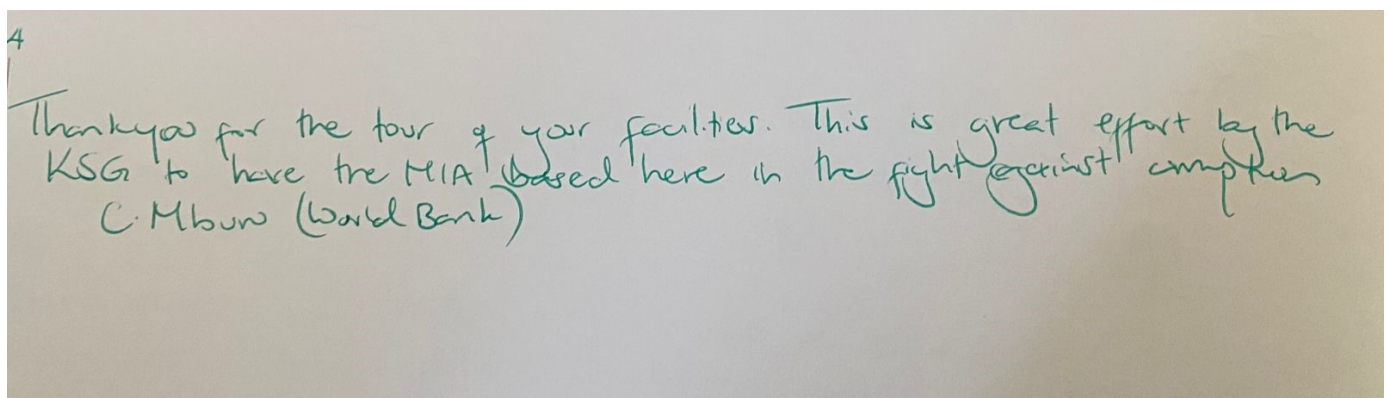 4
Thankyou for the tour of your facilities. This is great effort by the
KSG to have the MIA based here in the fight against corruption
C. Mburu (World Bank)